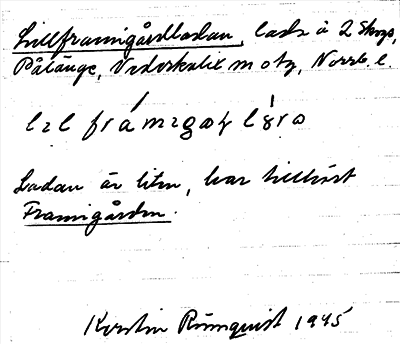 Lillframigårdladan, lada å 2 Skogs,
Påläng, Nederkalix m o tg, Norrb. l.
Ladan är liten, har tillhört
Framigården.
Kerstin Rönnquist 1945